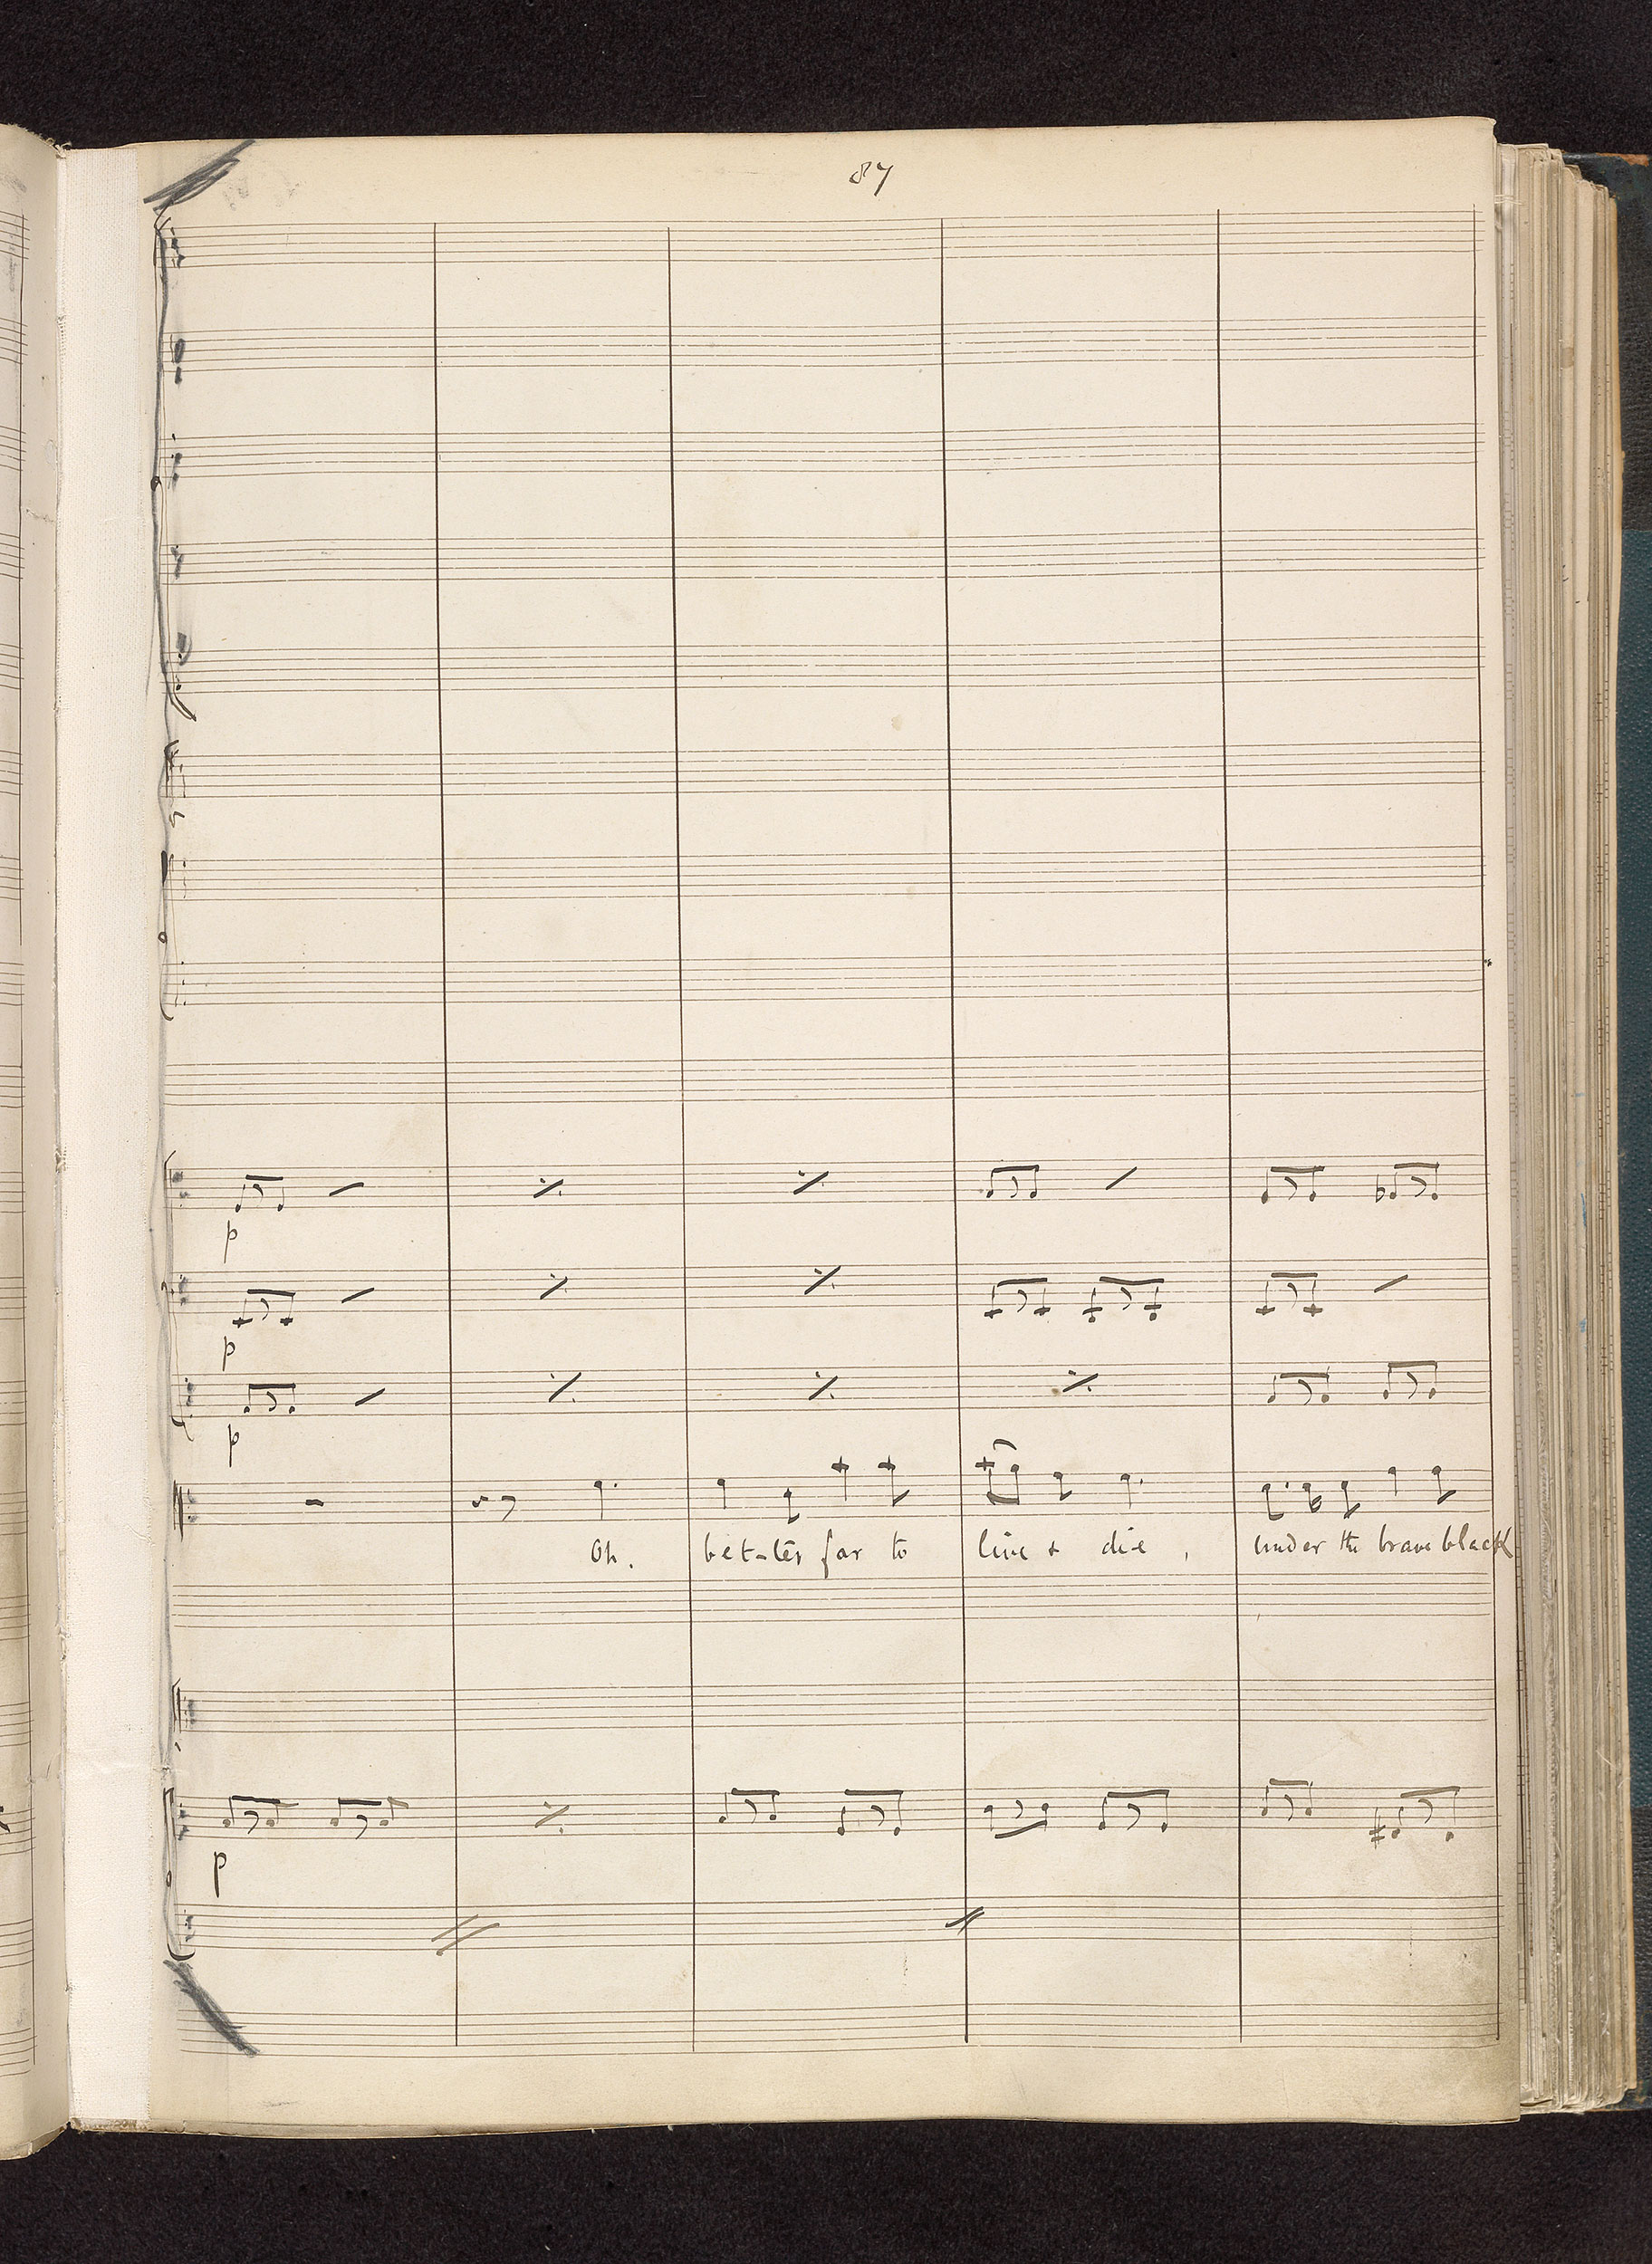 87
p
p
p
Oh. bet-ter far to live & die, under the brave black
p